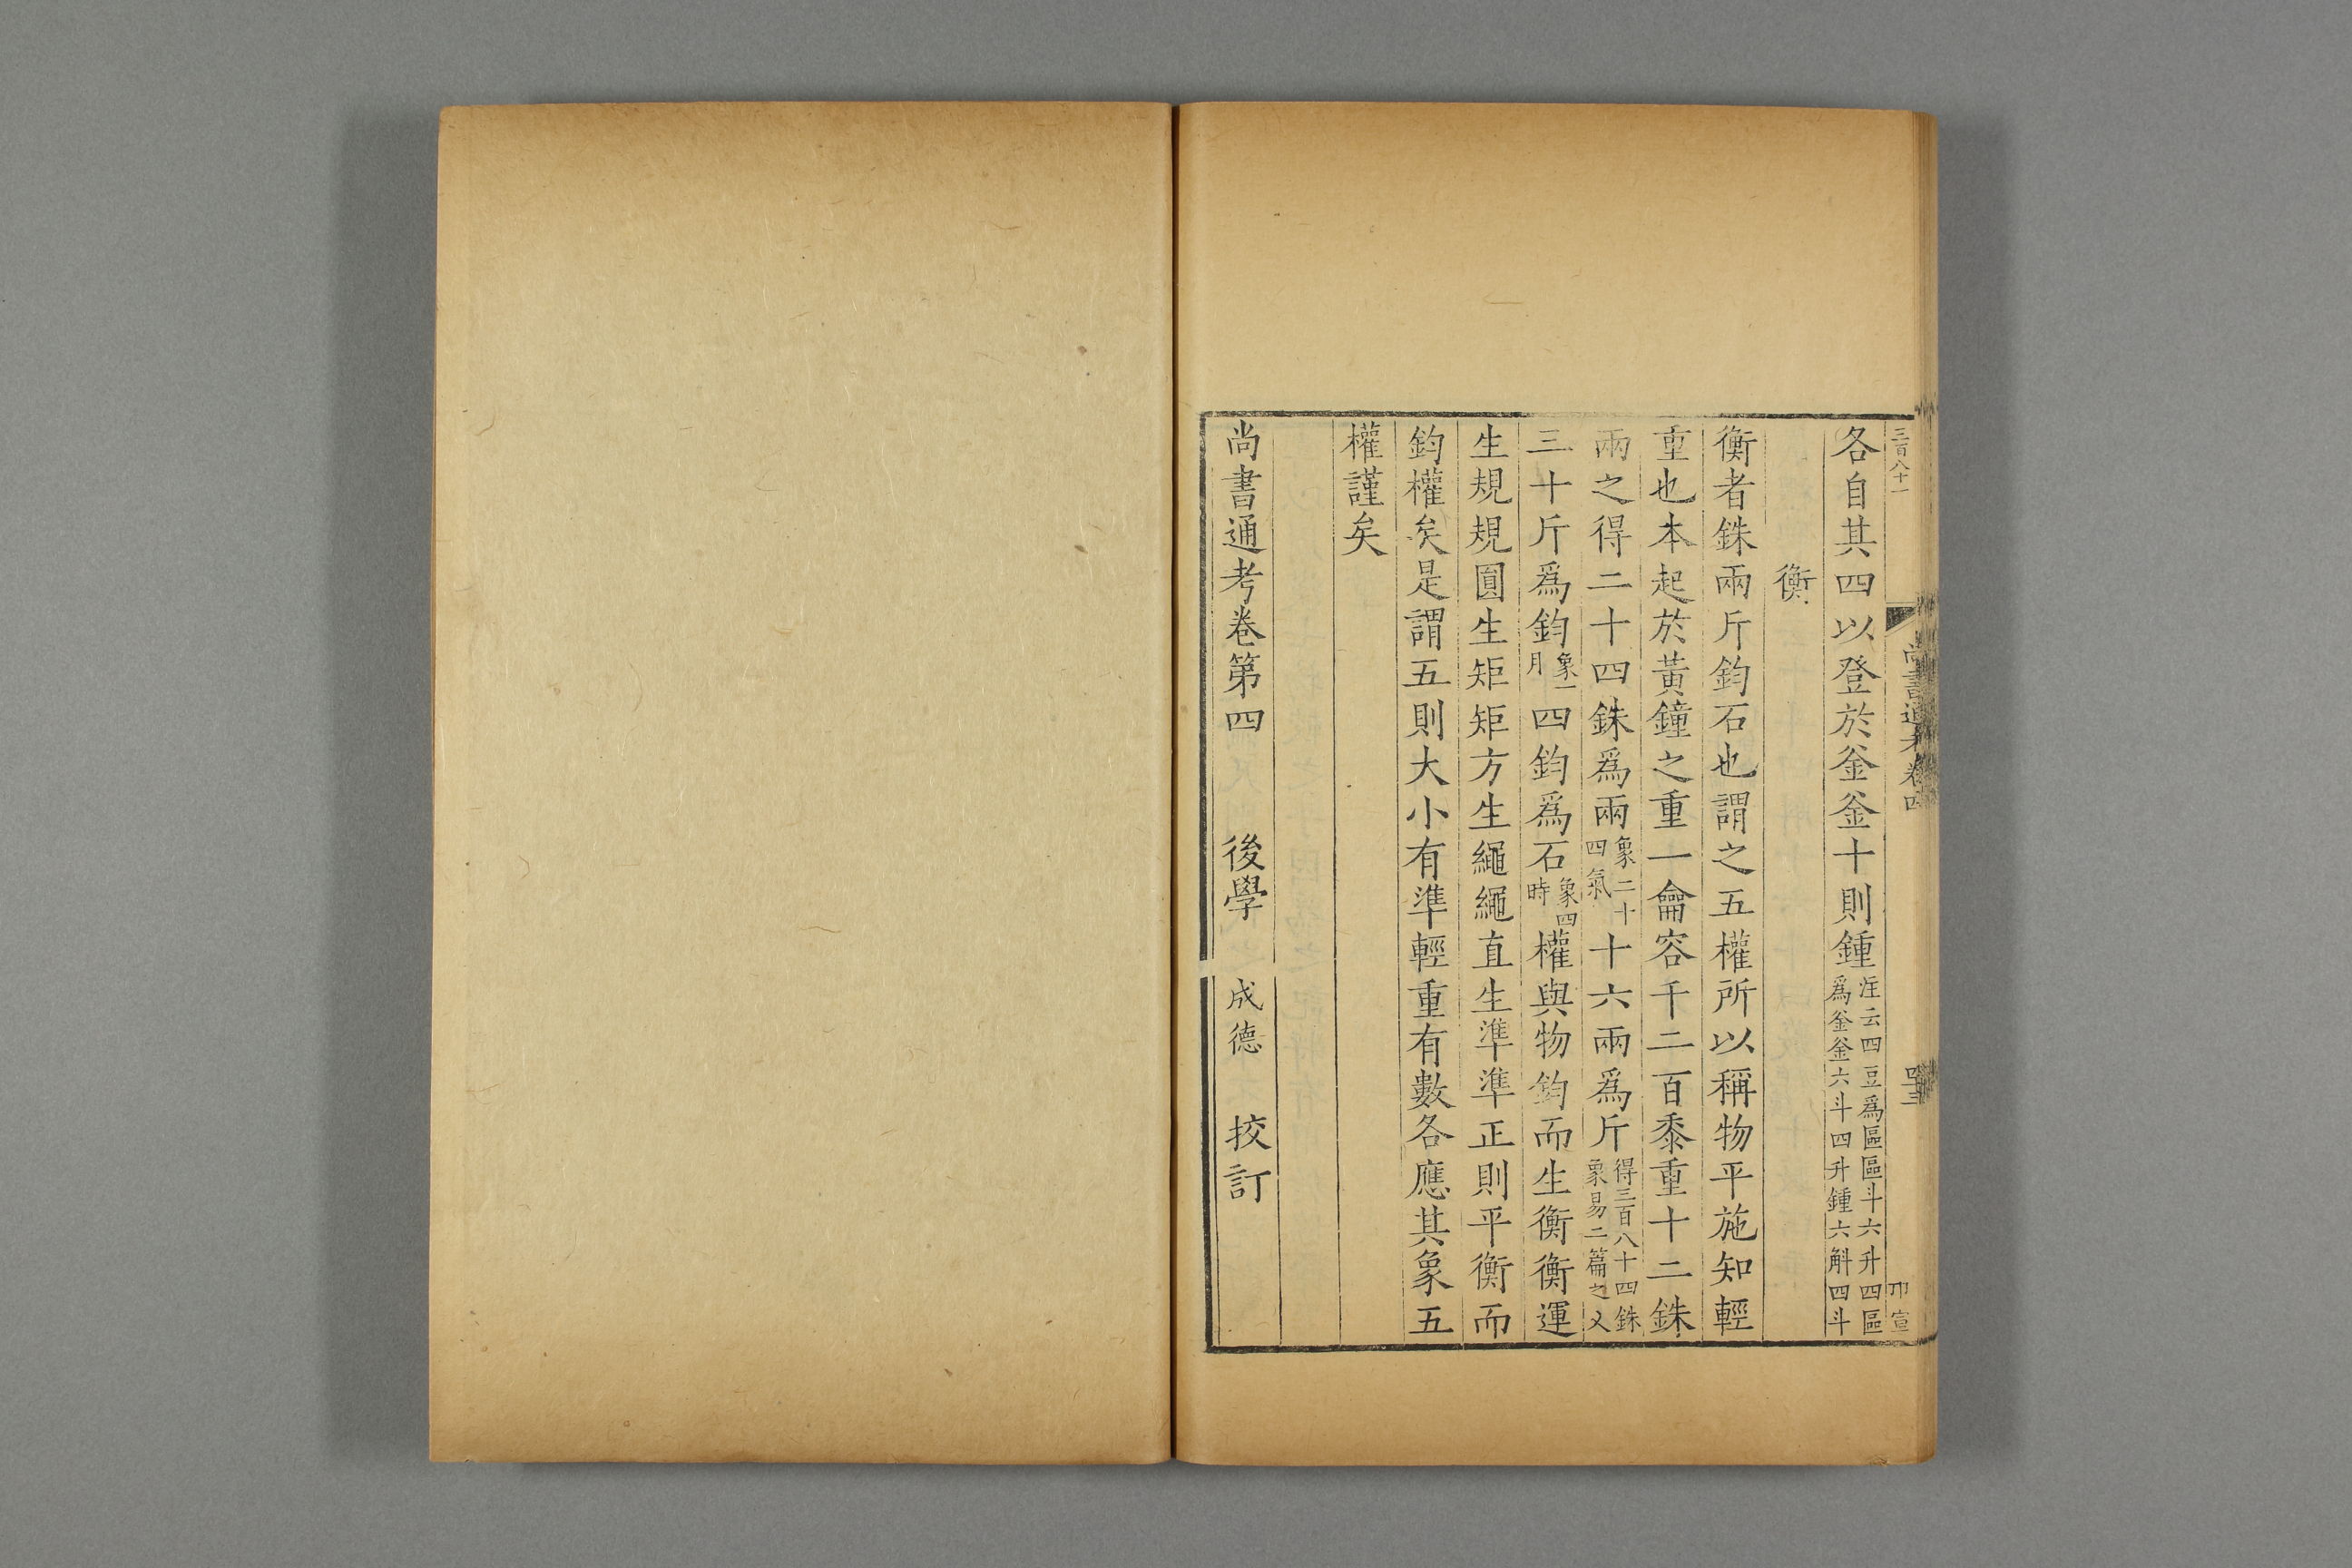 三百八十一
尚書通考卷四
各自其四以登於釜釜十則鍾注云四豆爲區區斗六升四區爲釜釜六斗四升鍾六斛四斗
衡
衡者銖兩斤鈞石也謂之五權所以稱物平施知輕
重也本起於黃鐘之重一龠容千二百黍重十二銖
兩之得二十四銖爲兩象二十四氣十六兩爲斤得三百八十四銖象易二篇之爻
三十斤爲鈞象一月四鈞爲石象四時權與物鈞而生衡衡運
生規規圓生矩矩方生繩繩直生準準正則平衡而
鈞權矣是謂五則大小有準輕重有數各應其象五
權謹矣
尚書通考卷第四 後學 成德 挍訂